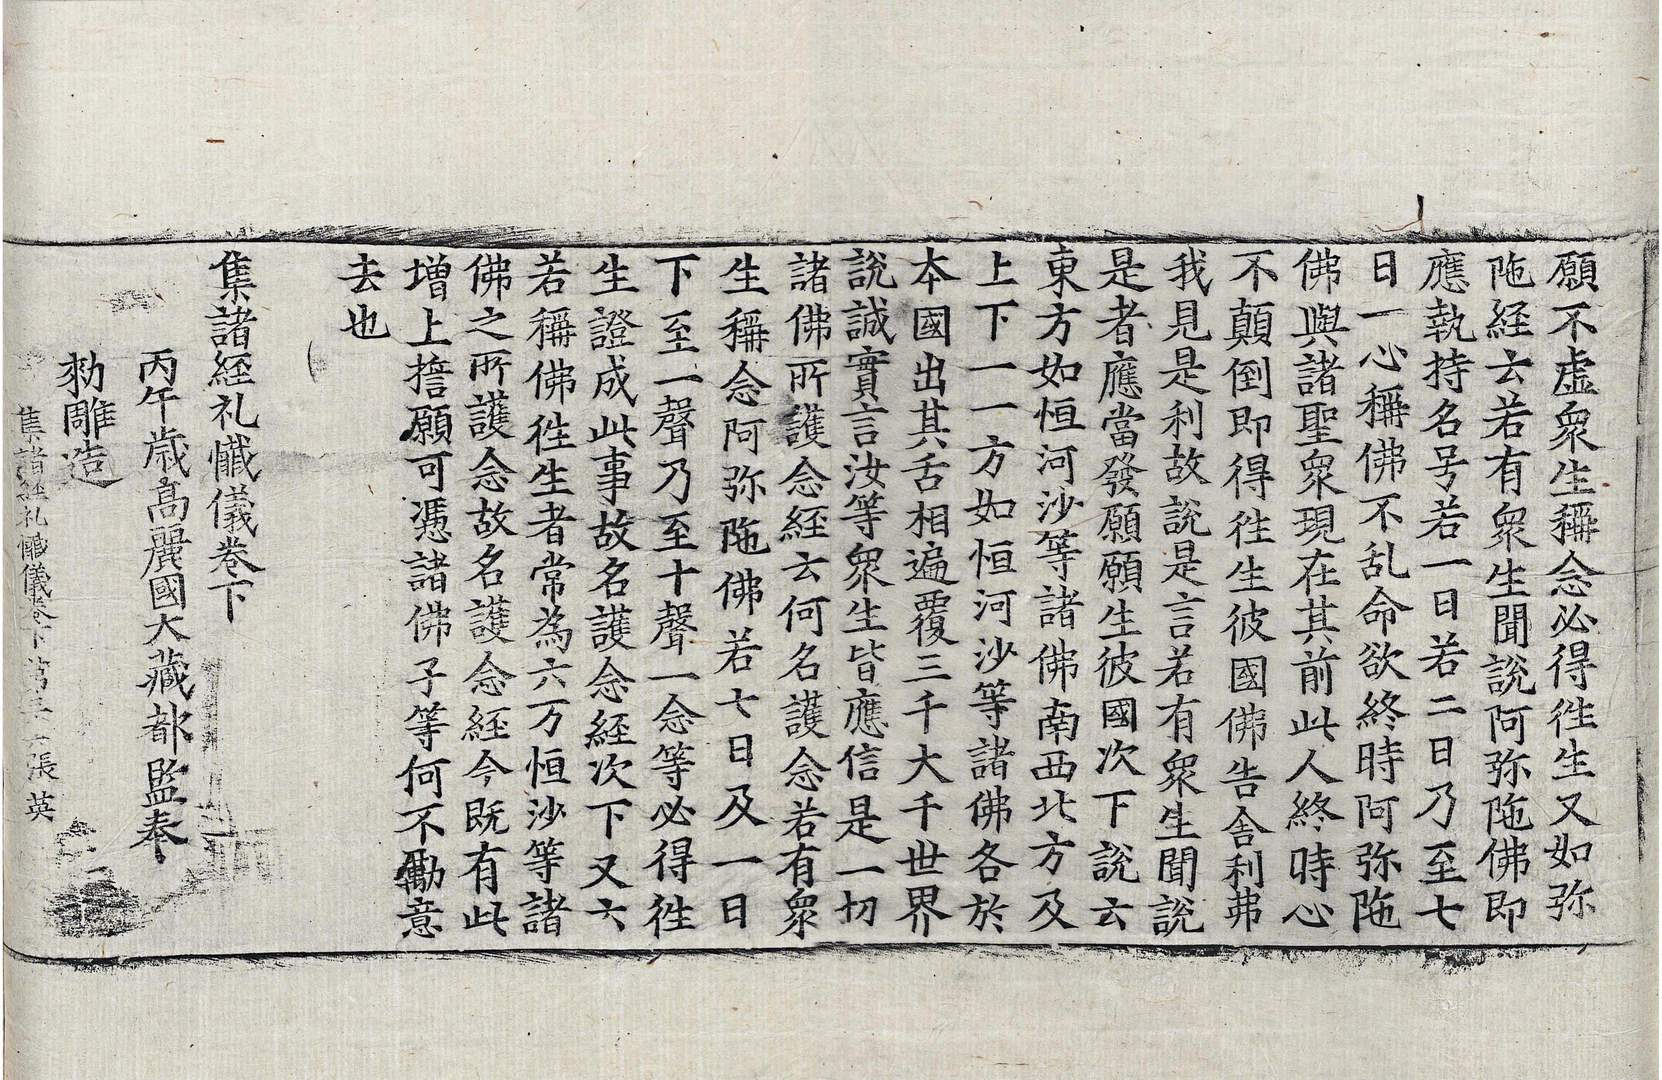 願不虛衆生稱念必得徃生又如弥
陁経云若有衆生聞說阿弥陁佛即
應執持名号若一日若二日乃至七
日一心稱佛不乱命欲終時阿弥陁
佛與諸聖衆現在其前此人終時心
不顛倒即得徃生彼國佛告舍利弗
我見是利故說是言若有衆生聞說
是者應當發願願生彼國次下說云
東方如恒河沙等諸佛南西北方及
上下一一方如恒河沙等諸佛各於
本國出其舌相遍覆三千大千世界
說誠實言汝等衆生皆應信是一切
諸佛所護念経云何名護念若有衆
生稱念阿弥陁佛若七日及一日
下至一聲乃至十聲一念等必得徃
生證成此事故名護念経次下又云
若稱佛徃生者常為六万恒沙等諸
佛之所護念故名護念経今既有此
增上誓願可憑諸佛子等何不勵意
去也
集諸経礼懺儀卷下
丙午歲高麗國大藏都監奉
勑雕造
集諸経礼懺儀卷下 張 英